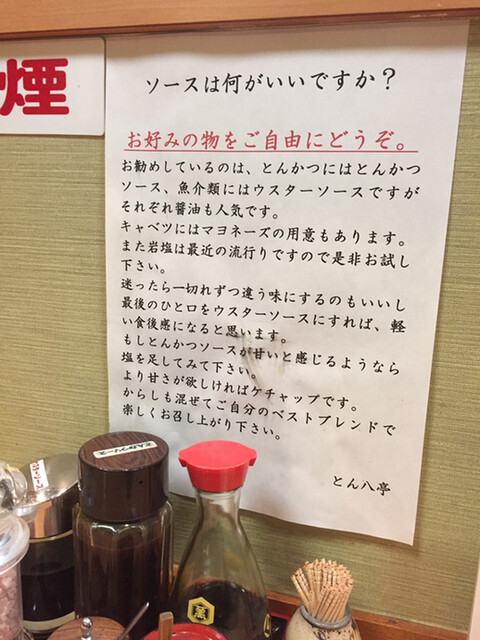 煙
ソースは何がいいですか？
お好みの物をご自由にどうぞ。
お勧めしているのは、とんかつにはとんかつ
ソース、魚介類にはウスターソースですが
それぞれ醤油も人気です。
キャベツにはマヨネーズの用意もあります。
また岩塩は最近の流行りですので是非お試し
下さい。
迷ったら一切れずつ違う味にするのもいいし
最後のひと口をウスターソースにすれば、軽
い食後感になると思います。
もしとんかつソースが甘いと感じるようなら
塩を足してみて下さい。
より甘さが欲しければケチャップです。
からしも混ぜてご自分のベストブレンドで
楽しくお召し上がり下さい。
とん八亭
とんかつソース
萬